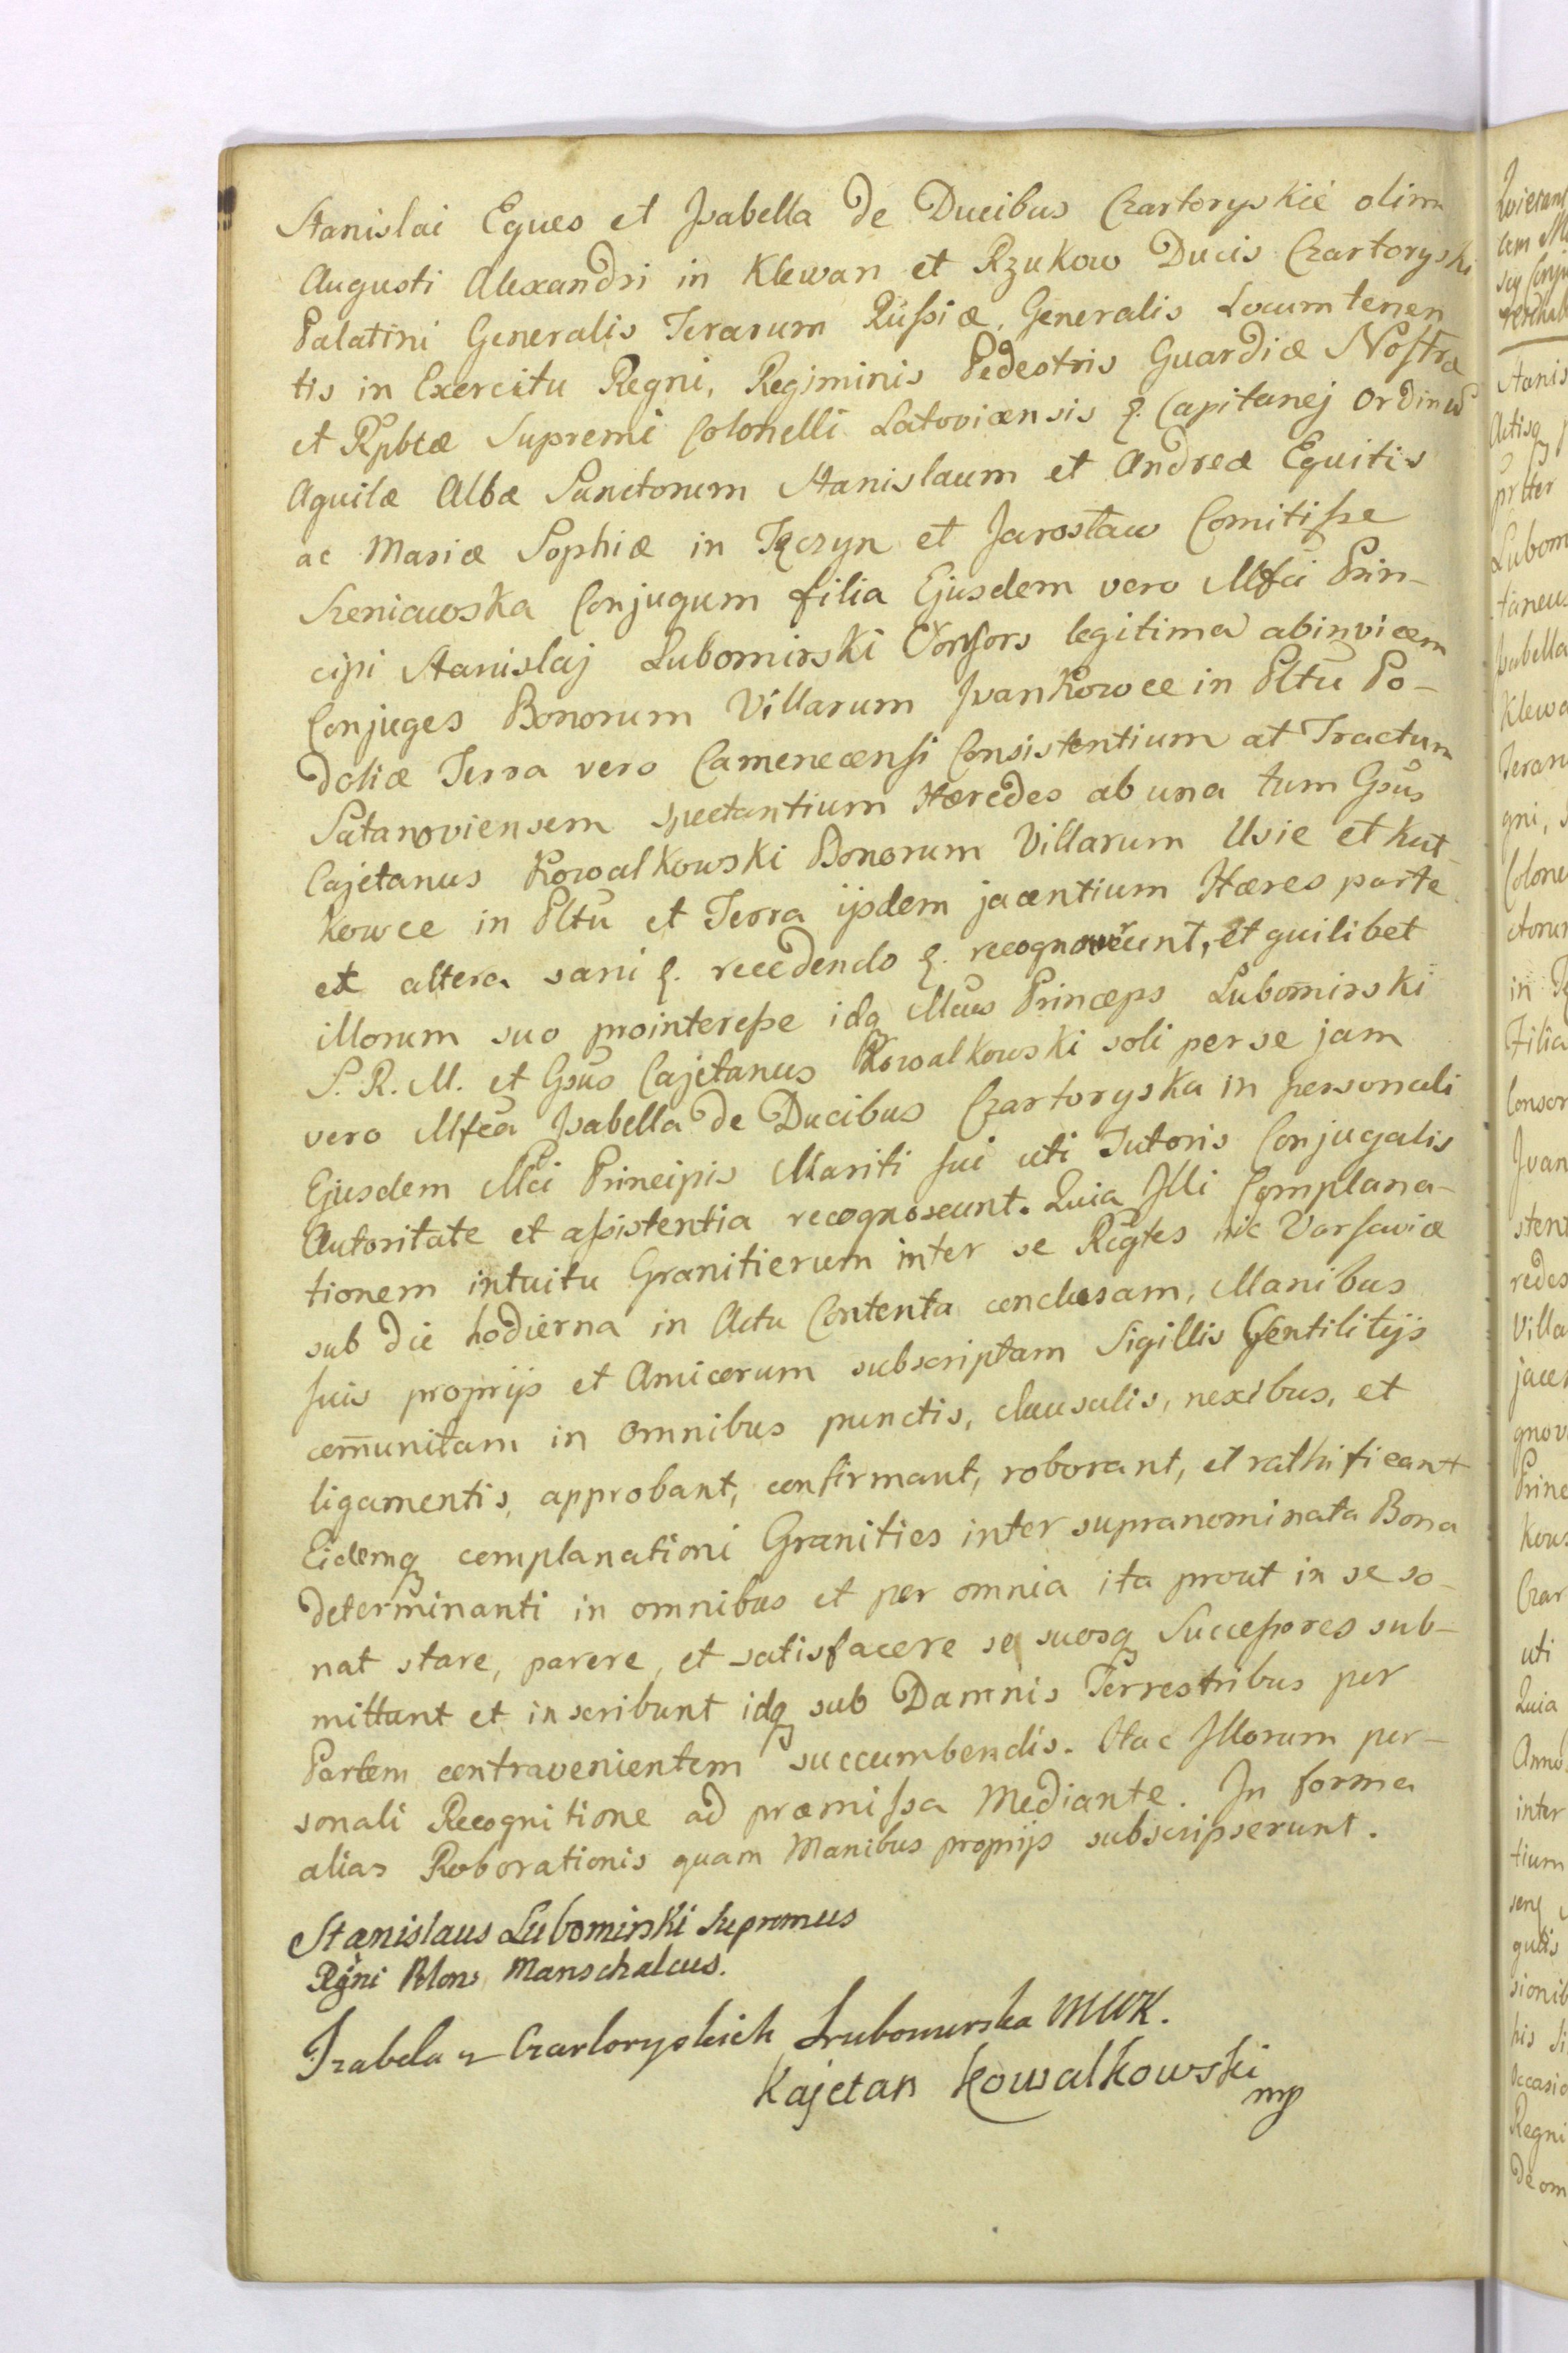 Stanislai Eques et Isabella de Ducibus Czartoryskie olim
Augusti Alexandri in Klewan et Rzukow Ducis Czartoryski
Palatini Generalis Terarum Russiæ, Generalis Locumtenen
tis in Exercitu Regni, Regiminis Pedestris Guardiæ Nostræ
et Rpbcæ Supremi Colonelli Latoviæensis &. Capitanej Ordinū
Aquilæ Albæ Sanctorum Stanislaum et Andreæ Equitis
ac Mariæ Sophiæ in Tęczyn et Jarosław Comitisse
Sieniawska Conjugum filia Ejusdem vero Mfci Prin-
cipi Stanislaj Lubomirski Consors legitima abinvicem
Conjuges Bonorum Villarum Jvankowce in Pltū Po-
doliæ Terra vero Camenecensi Consistentium at Tractum
Satanoviensem spectantium Hæredes ab una tum Gsūs
Cajetanus Kowalkowski Bonorum Villarum Usie et Kut-
kowce in Pltū et Terra ijsdem jacentium Hæres parte
ex altera sani &. recedendo &. recognoverunt, et quilibet
illorum suo prointeresse idq Mcus Princeps Lubomirski
S. R. M. et Gsūs Cajetanus Kowalkowski soli per se jam
vero Mfca Isabella de Ducibus Czartoryska in personali
Ejusdem Mci Principis Mariti sui uti Tutoris Conjugalis
Autoritate et assistentia recognoscunt. Quia Illi Complana-
tionem intuitu Granitierum inter se Rectes hic Varsaviæ
sub die hodierna in Actu Contenta conclusam, Manibus
suis proprijs et Amicorum subscriptam Sigillis Gentilitijs
com̄unitam in omnibus punctis, clausulis, nexibus, et
ligamentis, approbant, confirmant, roborant, et rathificant
Eidemq complanationi Granities inter supranominata Bona
determinanti in omnibus et per omnia ita prout in se so-
nat stare, parere, et satisfacere se suosq Successores sub-
mittunt et inscribunt idq sub Damnis Terrestribus per
Partem contravenientem succumbendis. Hac Illorum per-
sonali Recognitione ad præmissa Mediante. In forma
alias Roborationis quam Manibus proprijs subscripserunt.
Stanislaus Lubomirski Supremus
Rgni Polon: Marschalcus.
Izabela z Czartoryskich Lubomirska MWK.
Kajetan Kowalkowski
mp